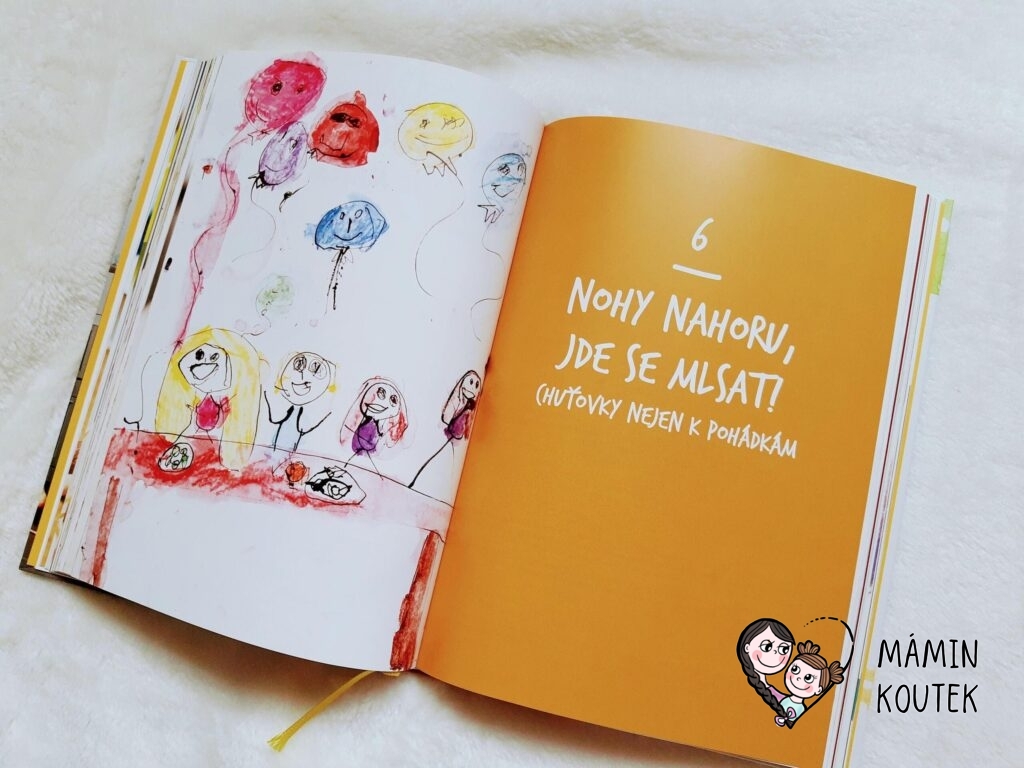 6
NOHY NAHORU,
JDE SE MLSAT!
CHUŤOVKY NEJEN K POHÁDKÁM
MÁMIN
KOUTEK